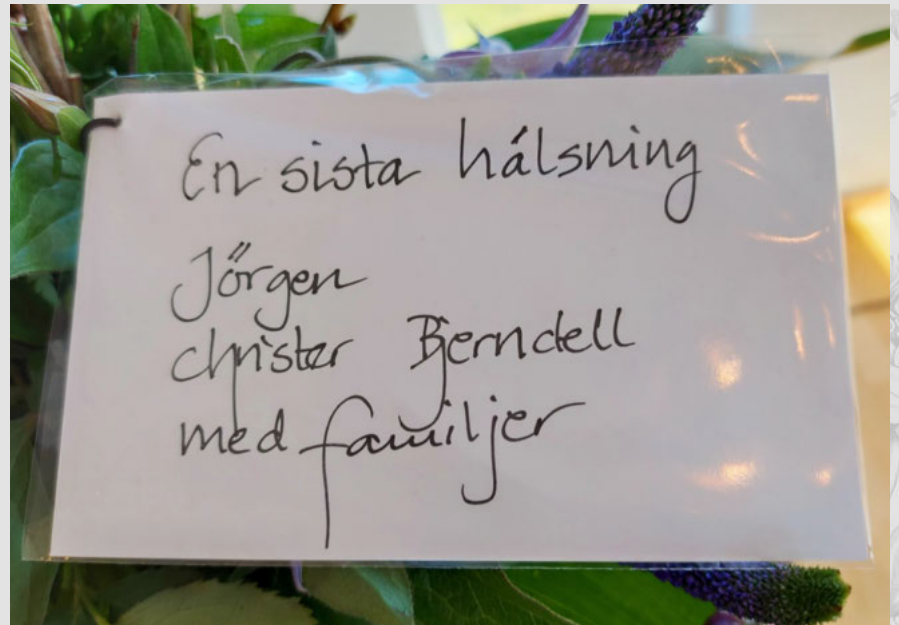 En sista hälsning
Jörgen
christer Bjerndell
med familjer